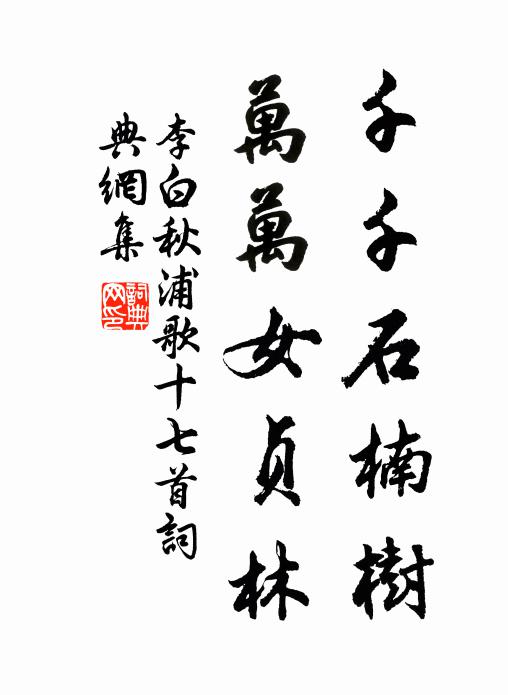 千千石楠樹
萬萬女貞林
李白秋浦歌十七首詞
典網集
詞典
网印